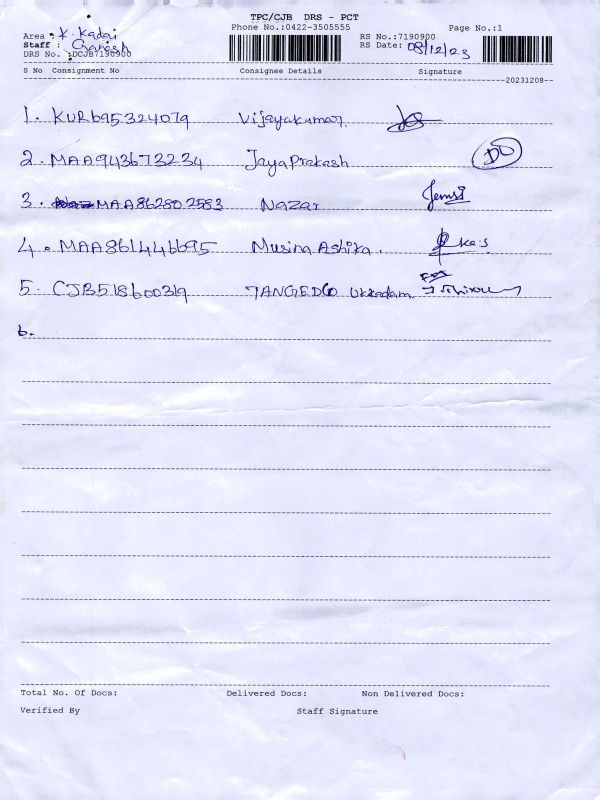 TPC/CJB DRS - PCT
Phone No.:0422-3505555 Page No.:1
Area : K. Kadai RS No.:7190900
Staff : Ganesh RS Date: 08/12/23
DRS No. :DCJB7190900
S No Consignment No Consignee Details Signature
20231208
1. KUR695324079 Vijayakumar
2. MAA943673234 JayaPrakash
3. MAA862802583 Nazar
4. MAA861446695 Musina Ashika.
5. CJB518600319 TANGEDCO Ukkadam
6.
Total No. Of Docs: Delivered Docs: Non Delivered Docs:
Verified By Staff Signature